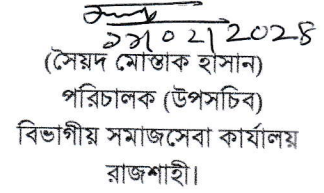 ১১/০২/২০২৪
(সৈয়দ মোস্তাক হাসান)
পরিচালক (উপসচিব)
বিভাগীয় সমাজসেবা কার্যালয়
রাজশাহী।